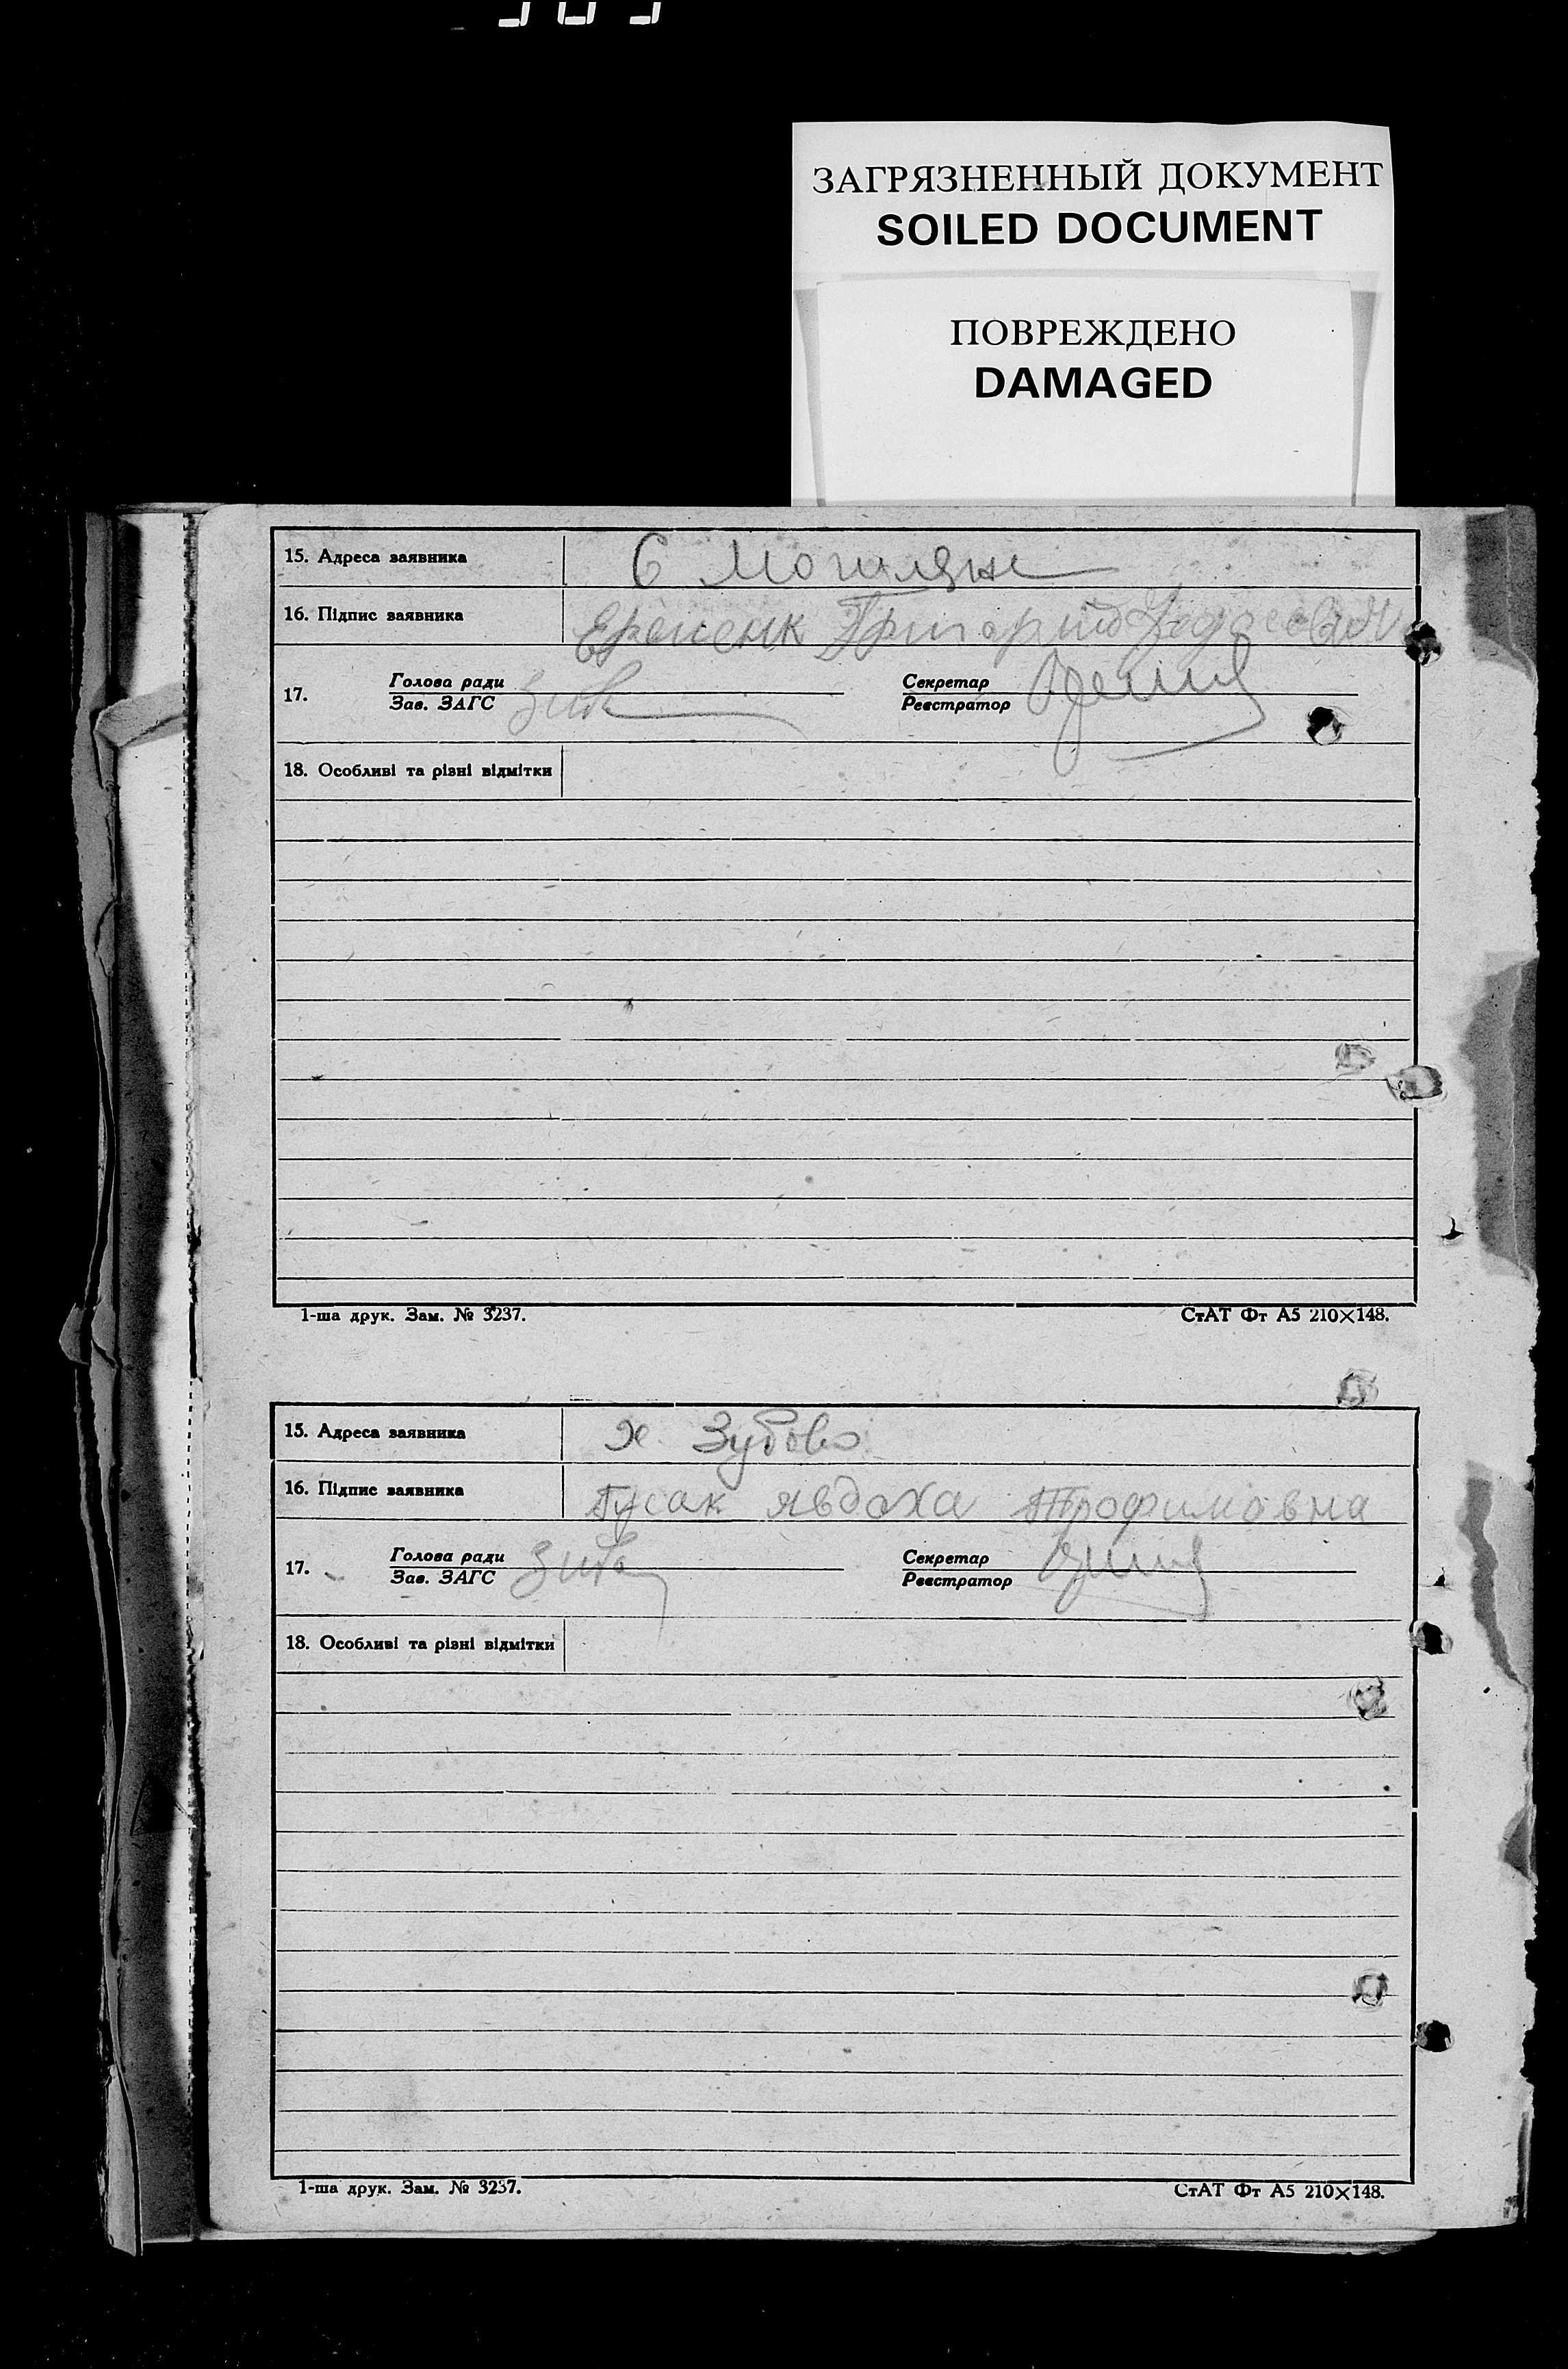 ЗАГРЯЗНЕННЫЙ ДОКУМЕНТ
SOILED DOCUMENT
ПОВРЕЖДЕНО
DAMAGED
15. Адреса заявника С Могиляне
16. Підпис заявника Григорий
17. Голова ради Секретар
Зав. ЗАГС Реєстратор
18. Особливі та різні відмітки
1-ша друк. Зам. № 3237. СтАТ Фт А5 210×148.
15. Адреса заявника х. Зубово
16. Підпис заявника Гусак явдоха Трофимовна
17. Голова ради Секретар
Зав. ЗАГС Реєстратор
18. Особливі та різні відмітки
1-ша друк. Зам. № 3237. СтАТ Фт А5 210×148.